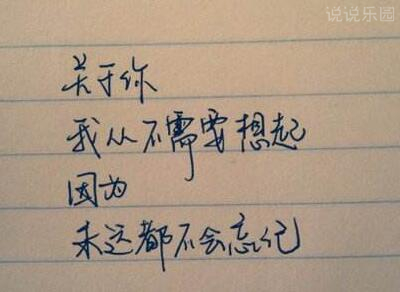 说说乐园
关于你
我从不需要想起
因为
永远都不会忘记